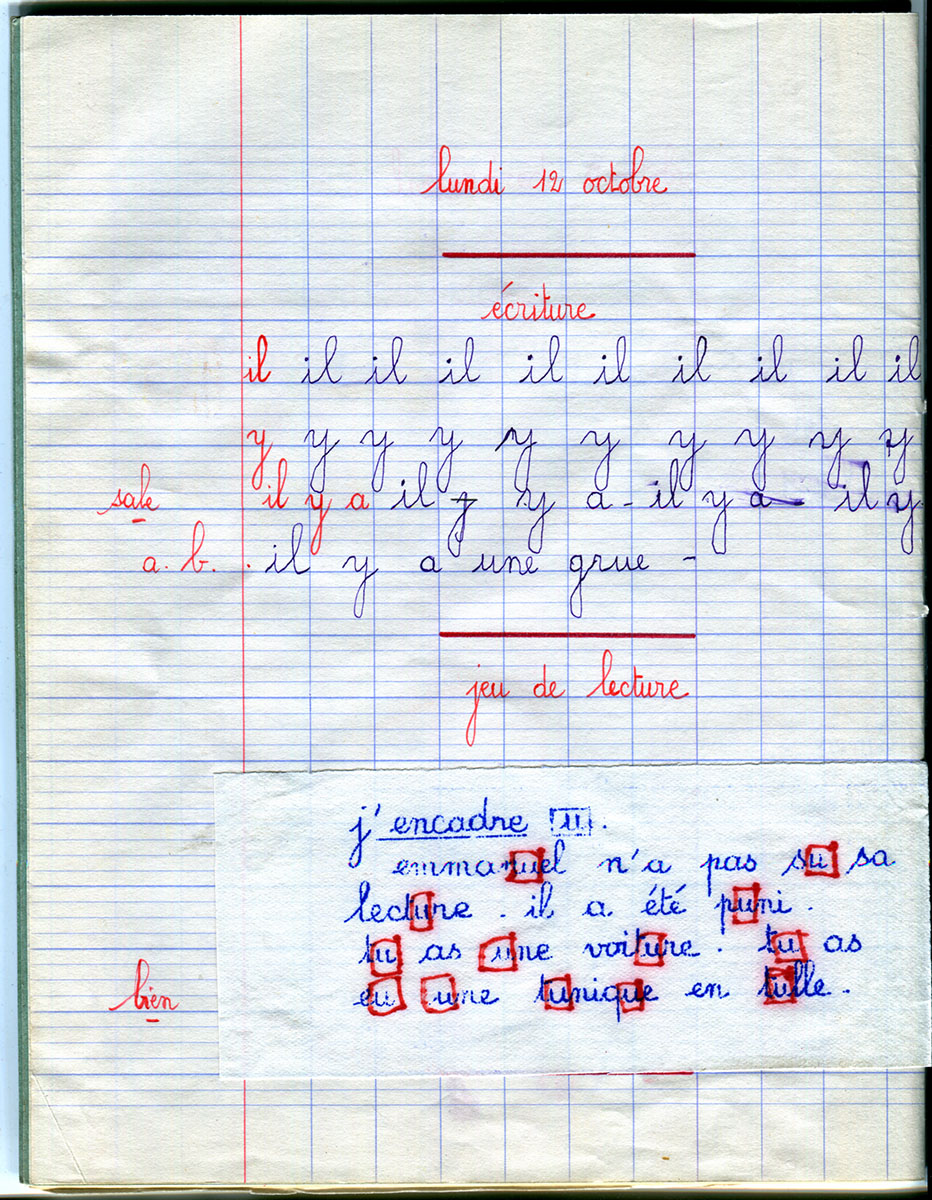 lundi 12 octobre
écriture
il il il il il il il il il il
y y y y y y y y y y
sale il y a il y y a - il y a - il y
a. b. . il y a une grue -
jeu de lecture
j'encadre u.
emmanuel n'a pas su sa
lecture. il a été puni.
tu as une voiture. tu as
bien eu une tunique en tulle.